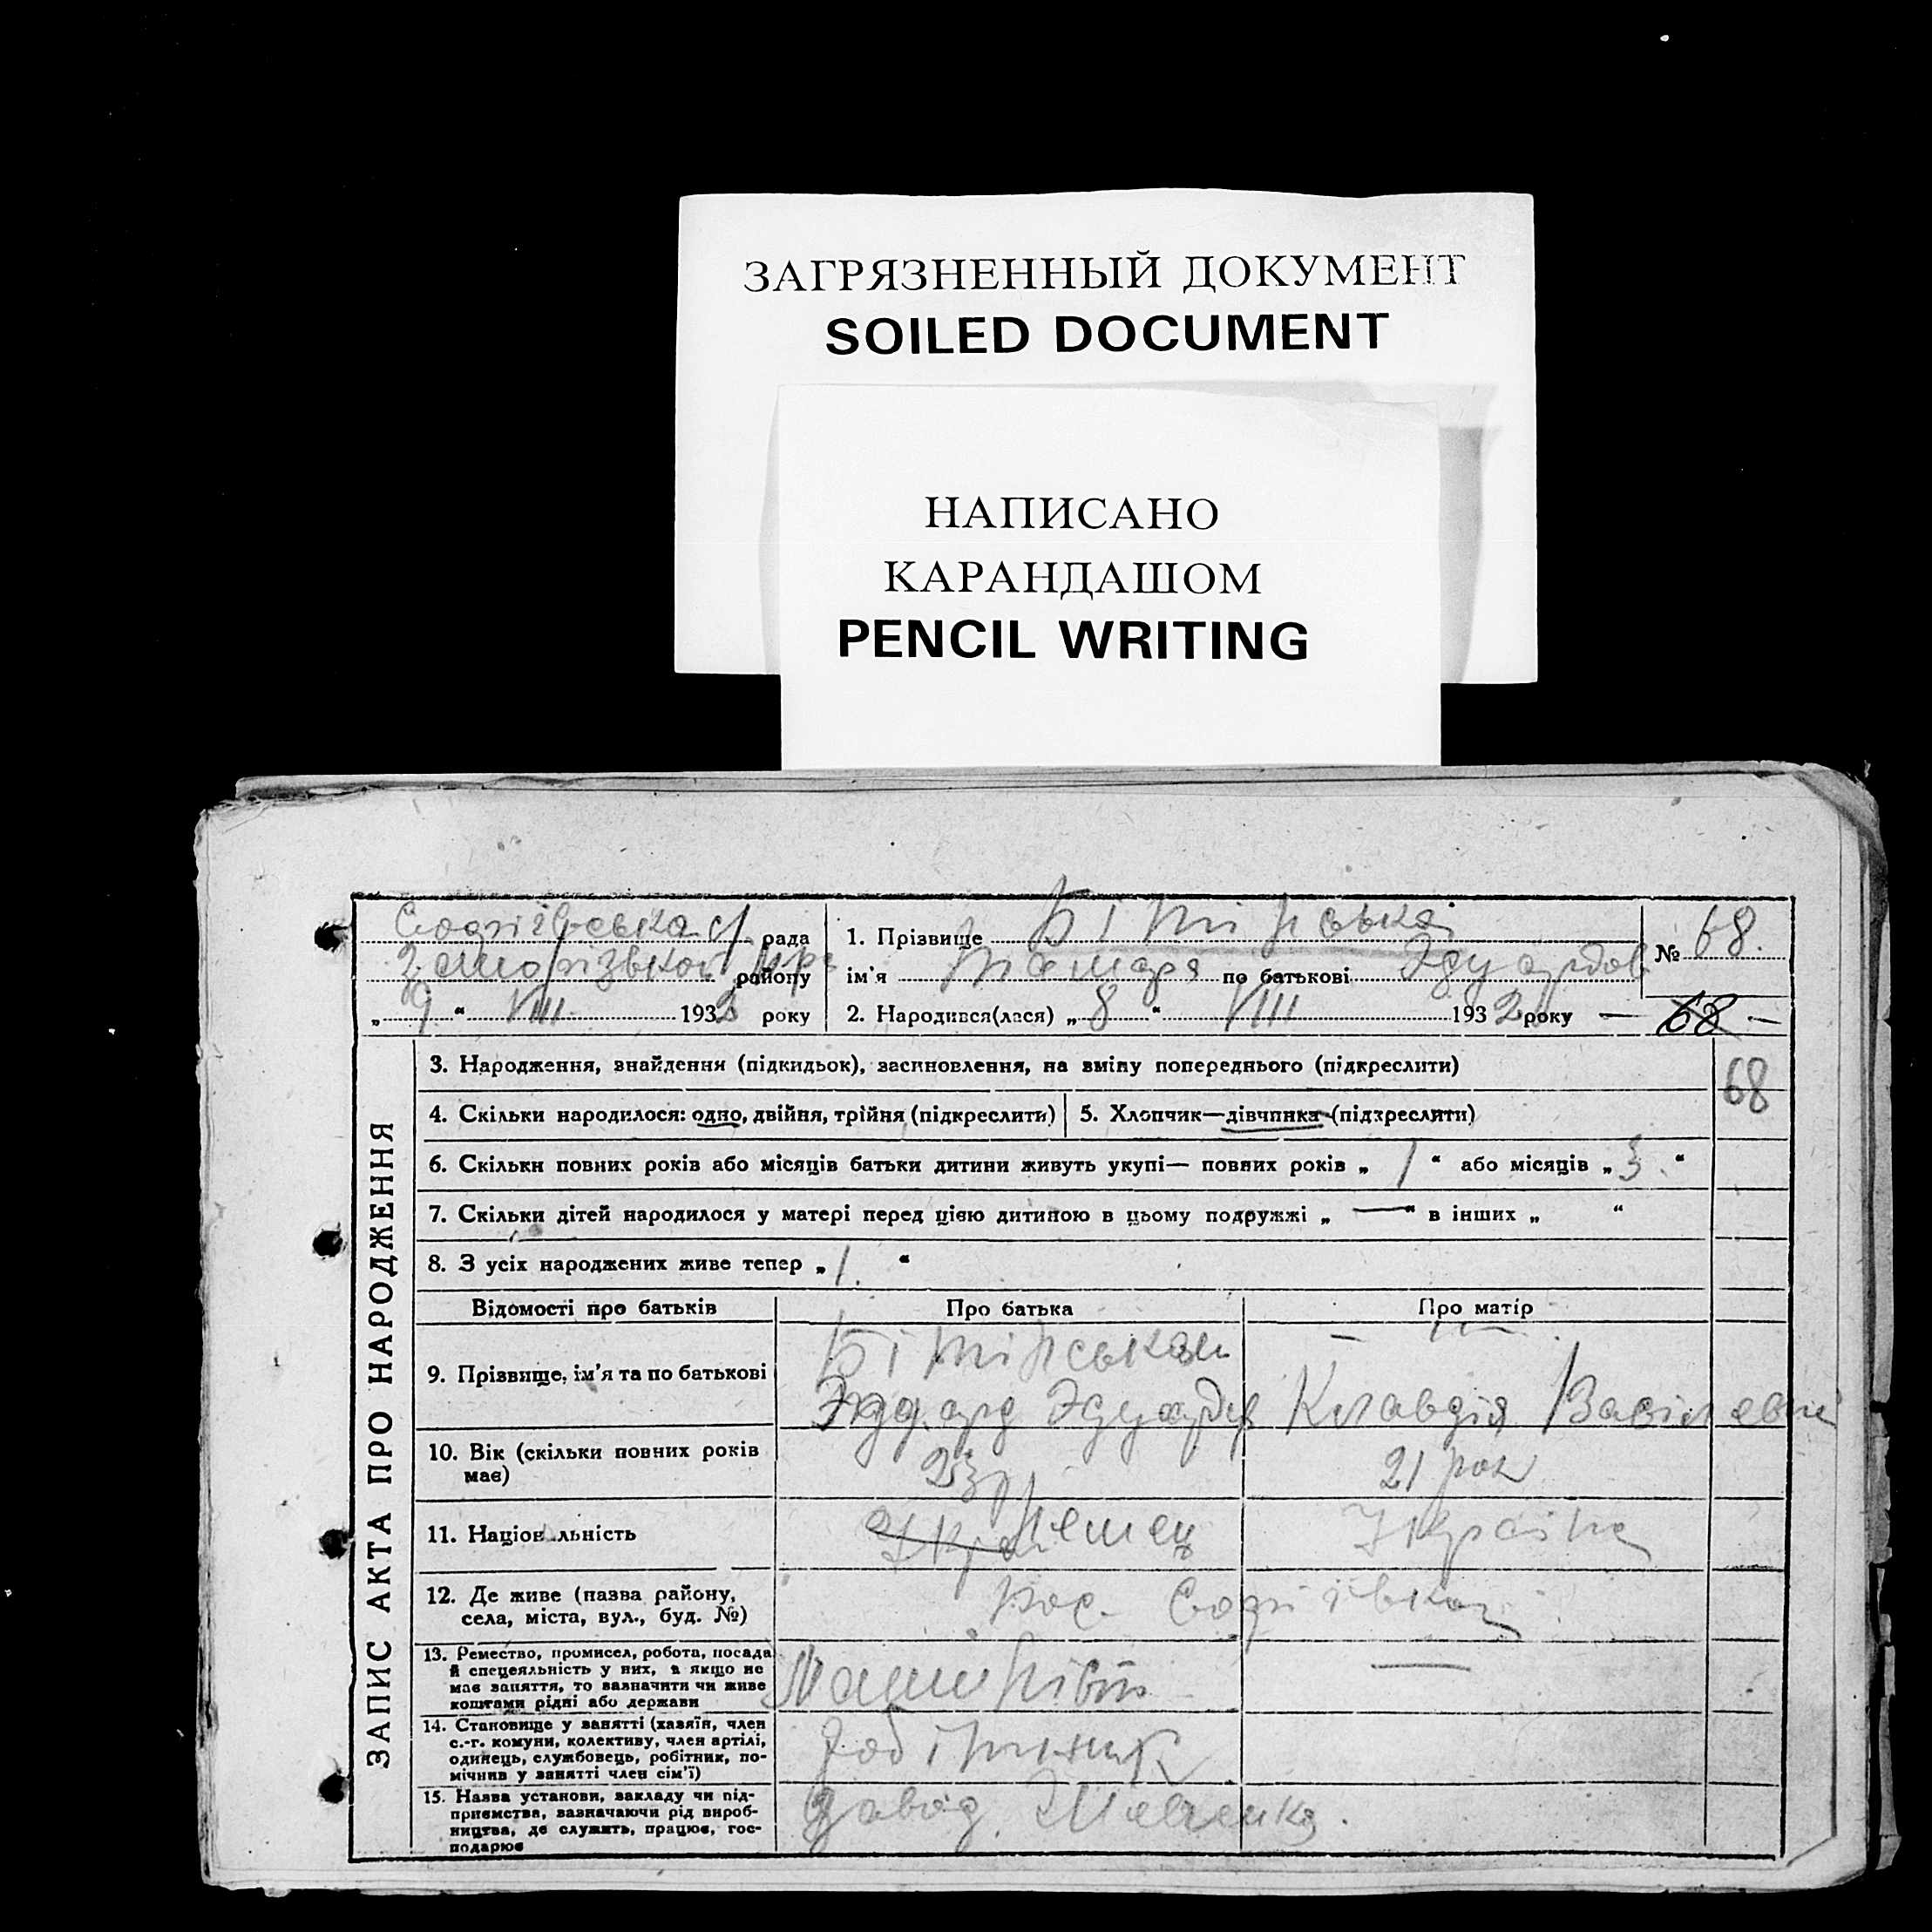 ЗАГРЯЗНЕННЫЙ ДОКУМЕНТ
SOILED DOCUMENT
НАПИСАНО
КАРАНДАШОМ
PENCIL WRITING
рада
району
„ 9 “ VIII 1932 року
1. Прізвище
ім'я Тамара по батькові Эдуардов
2. Народився(лася) „ 8 “ VIII 1932 року
№ 68.
— 68 —
68
ЗАПИС АКТА ПРО НАРОДЖЕННЯ
3. Народження, знайдення (підкидьок), засиновлення, на зміну попереднього (підкреслити)
4. Скільки народилося: одно, двійня, трійня (підкреслити)
5. Хлопчик—дівчинка (підкреслити)
6. Скільки повних років або місяців батьки дитини живуть укупі— повних років „ 1 “ або місяців „ 3 “
7. Скільки дітей народилося у матері перед цією дитиною в цьому подружжі „ — “ в інших „ “
8. З усіх народжених живе тепер „ 1. “
Відомості про батьків
Про батька
Про матір
9. Прізвище, ім'я та по батькові
Клавдія
10. Вік (скільки повних років
має)
23
21 рок
11. Національність
Немец
Україн
12. Де живе (назва району,
села, міста, вул., буд. №)
13. Ремество, промисел, робота, посада
й спецеяльність у них, а якщо не
має заняття, то зазначити чи живе
коштами рідні або держави
—
14. Становище у занятті (хазяїн, член
с.-г. комуни, колективу, член артілі,
одинець, службовець, робітник, по-
мічник у занятті член сім'ї)
Робітник
15. Назва установи, закладу чи під-
приємства, зазначаючи рід вироб-
ництва, де служить, працює, гос-
подарює
Завод